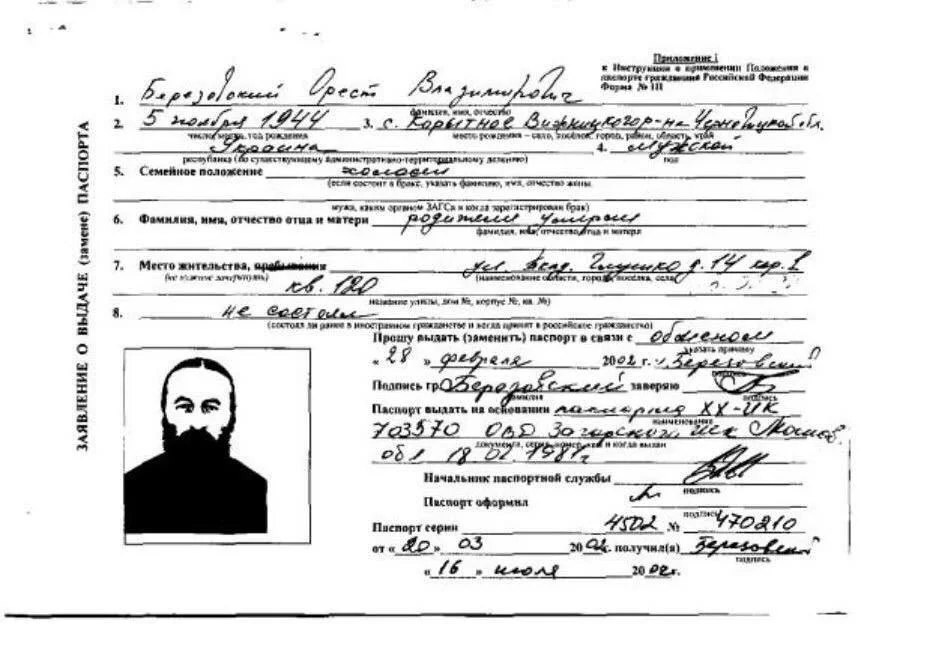 Приложение 1
к Инструкции о применении Положения о
паспорте гражданина Российской Федерации
Форма № 1П
ЗАЯВЛЕНИЕ О ВЫДАЧЕ (замене) ПАСПОРТА
1. Березовский Орест Владимирович
фамилия, имя, отчество
2. 5 ноября 1944 3. с. Корытнов Вижницкого р-на Черновицкой обл.
число, месяц, год рождения место рождения – село, посёлок, город, район, область, край
Украина 4. Мужской
республика (по существующему административно-территориальному делению) пол
5. Семейное положение холост
(если состоит в браке, указать фамилию, имя, отчество жены,
мужа, каким органом ЗАГСа и когда зарегистрирован брак)
6. Фамилия, имя, отчество отца и матери родители умерли
фамилия, имя, отчество отца и матери
7. Место жительства, пребывания ул. Акад. Глушко д. 14 кор. 1
(не нужное зачеркнуть) (наименование области, города, поселка, села)
кв. 120
название улицы, дом №, корпус №, кв. №)
8. не состоял
(состоял ли ранее в иностранном гражданстве и когда принят в российское гражданство)
Прошу выдать (заменить) паспорт в связи с обменом
указать причину
« 28 » февраля 2002 г. Березовский
подпись
Подпись гр. Березовский заверяю
фамилия подпись
Паспорт выдать на основании паспорта XX-ИК
наименование
703570 ОВД Загорского Моск.
документа, серия, номер, кем и когда выдан
обл 18 02 1981г
Начальник паспортной службы
подпись
Паспорт оформил
подпись
Паспорт серии 4502 № 470210
от « 20 » 03 2002 г. получил(а) Березовский
подпись
« 16 » июля 2002г.